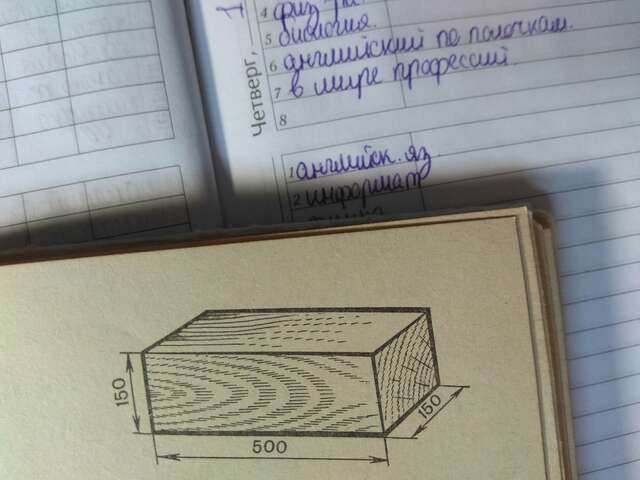 Четверг, 1
4 физ-ра.
5 биология.
6 английский по полочкам.
7 в мире профессий.
8
1 английск. яз.
2 информат
150
500
150